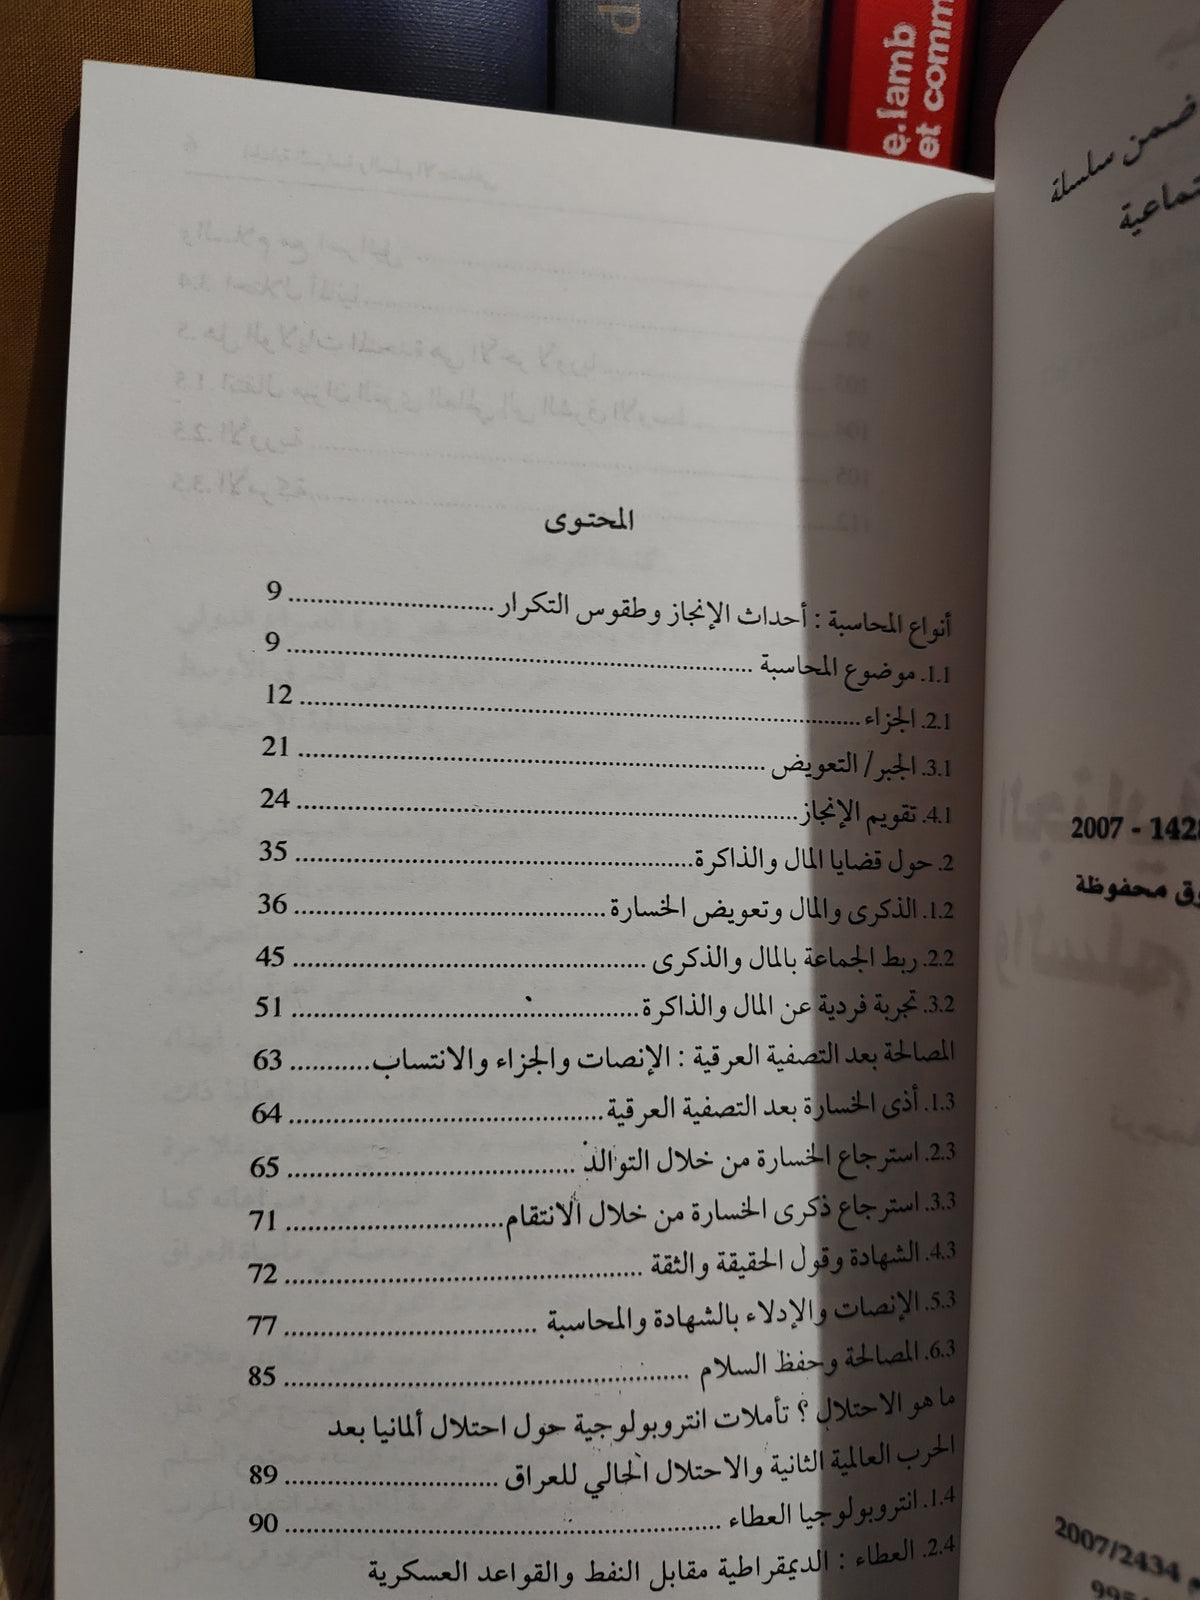 e.lamb
et comm
ضمن سلسلة
2007 - 1428
محفوظة
2007/2434
المحتوى
أنواع المحاسبة : أحداث الإنجاز وطقوس التكرار ........................ 9
1.1. موضوع المحاسبة ........................ 9
2.1. الجزاء ........................ 12
3.1. الجبر/ التعويض ........................ 21
4.1. تقويم الإنجاز ........................ 24
2. حول قضايا المال والذاكرة ........................ 35
1.2. الذكرى والمال وتعويض الخسارة ........................ 36
2.2. ربط الجماعة بالمال والذكرى ........................ 45
3.2. تجربة فردية عن المال والذاكرة ........................ 51
المصالحة بعد التصفية العرقية : الإنصات والجزاء والانتساب ........... 63
1.3. أذى الخسارة بعد التصفية العرقية ........................ 64
2.3. استرجاع الخسارة من خلال التوالد ........................ 65
3.3. استرجاع ذكرى الخسارة من خلال الانتقام ........................ 71
4.3. الشهادة وقول الحقيقة والثقة ........................ 72
5.3. الإنصات والإدلاء بالشهادة والمحاسبة ........................ 77
6.3. المصالحة وحفظ السلام ........................ 85
ما هو الاحتلال ؟ تأملات انتروبولوجية حول احتلال ألمانيا بعد
الحرب العالمية الثانية والاحتلال الحالي للعراق ........................ 89
1.4. انتروبولوجيا العطاء ........................ 90
2.4. العطاء : الديمقراطية مقابل النفط والقواعد العسكرية